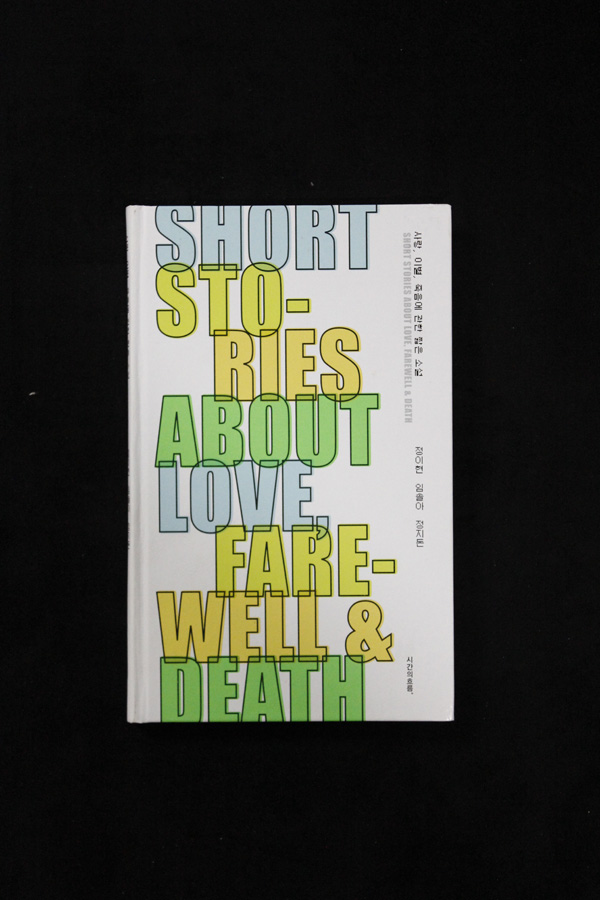 SHORT
STO-
RIES
ABOUT
LOVE,
FARE-
WELL &
DEATH
사랑, 이별, 죽음에 관한 짧은 소설
SHORT STORIES ABOUT LOVE, FAREWELL & DEATH
정이현 임솔아 정지돈
시간의흐름.